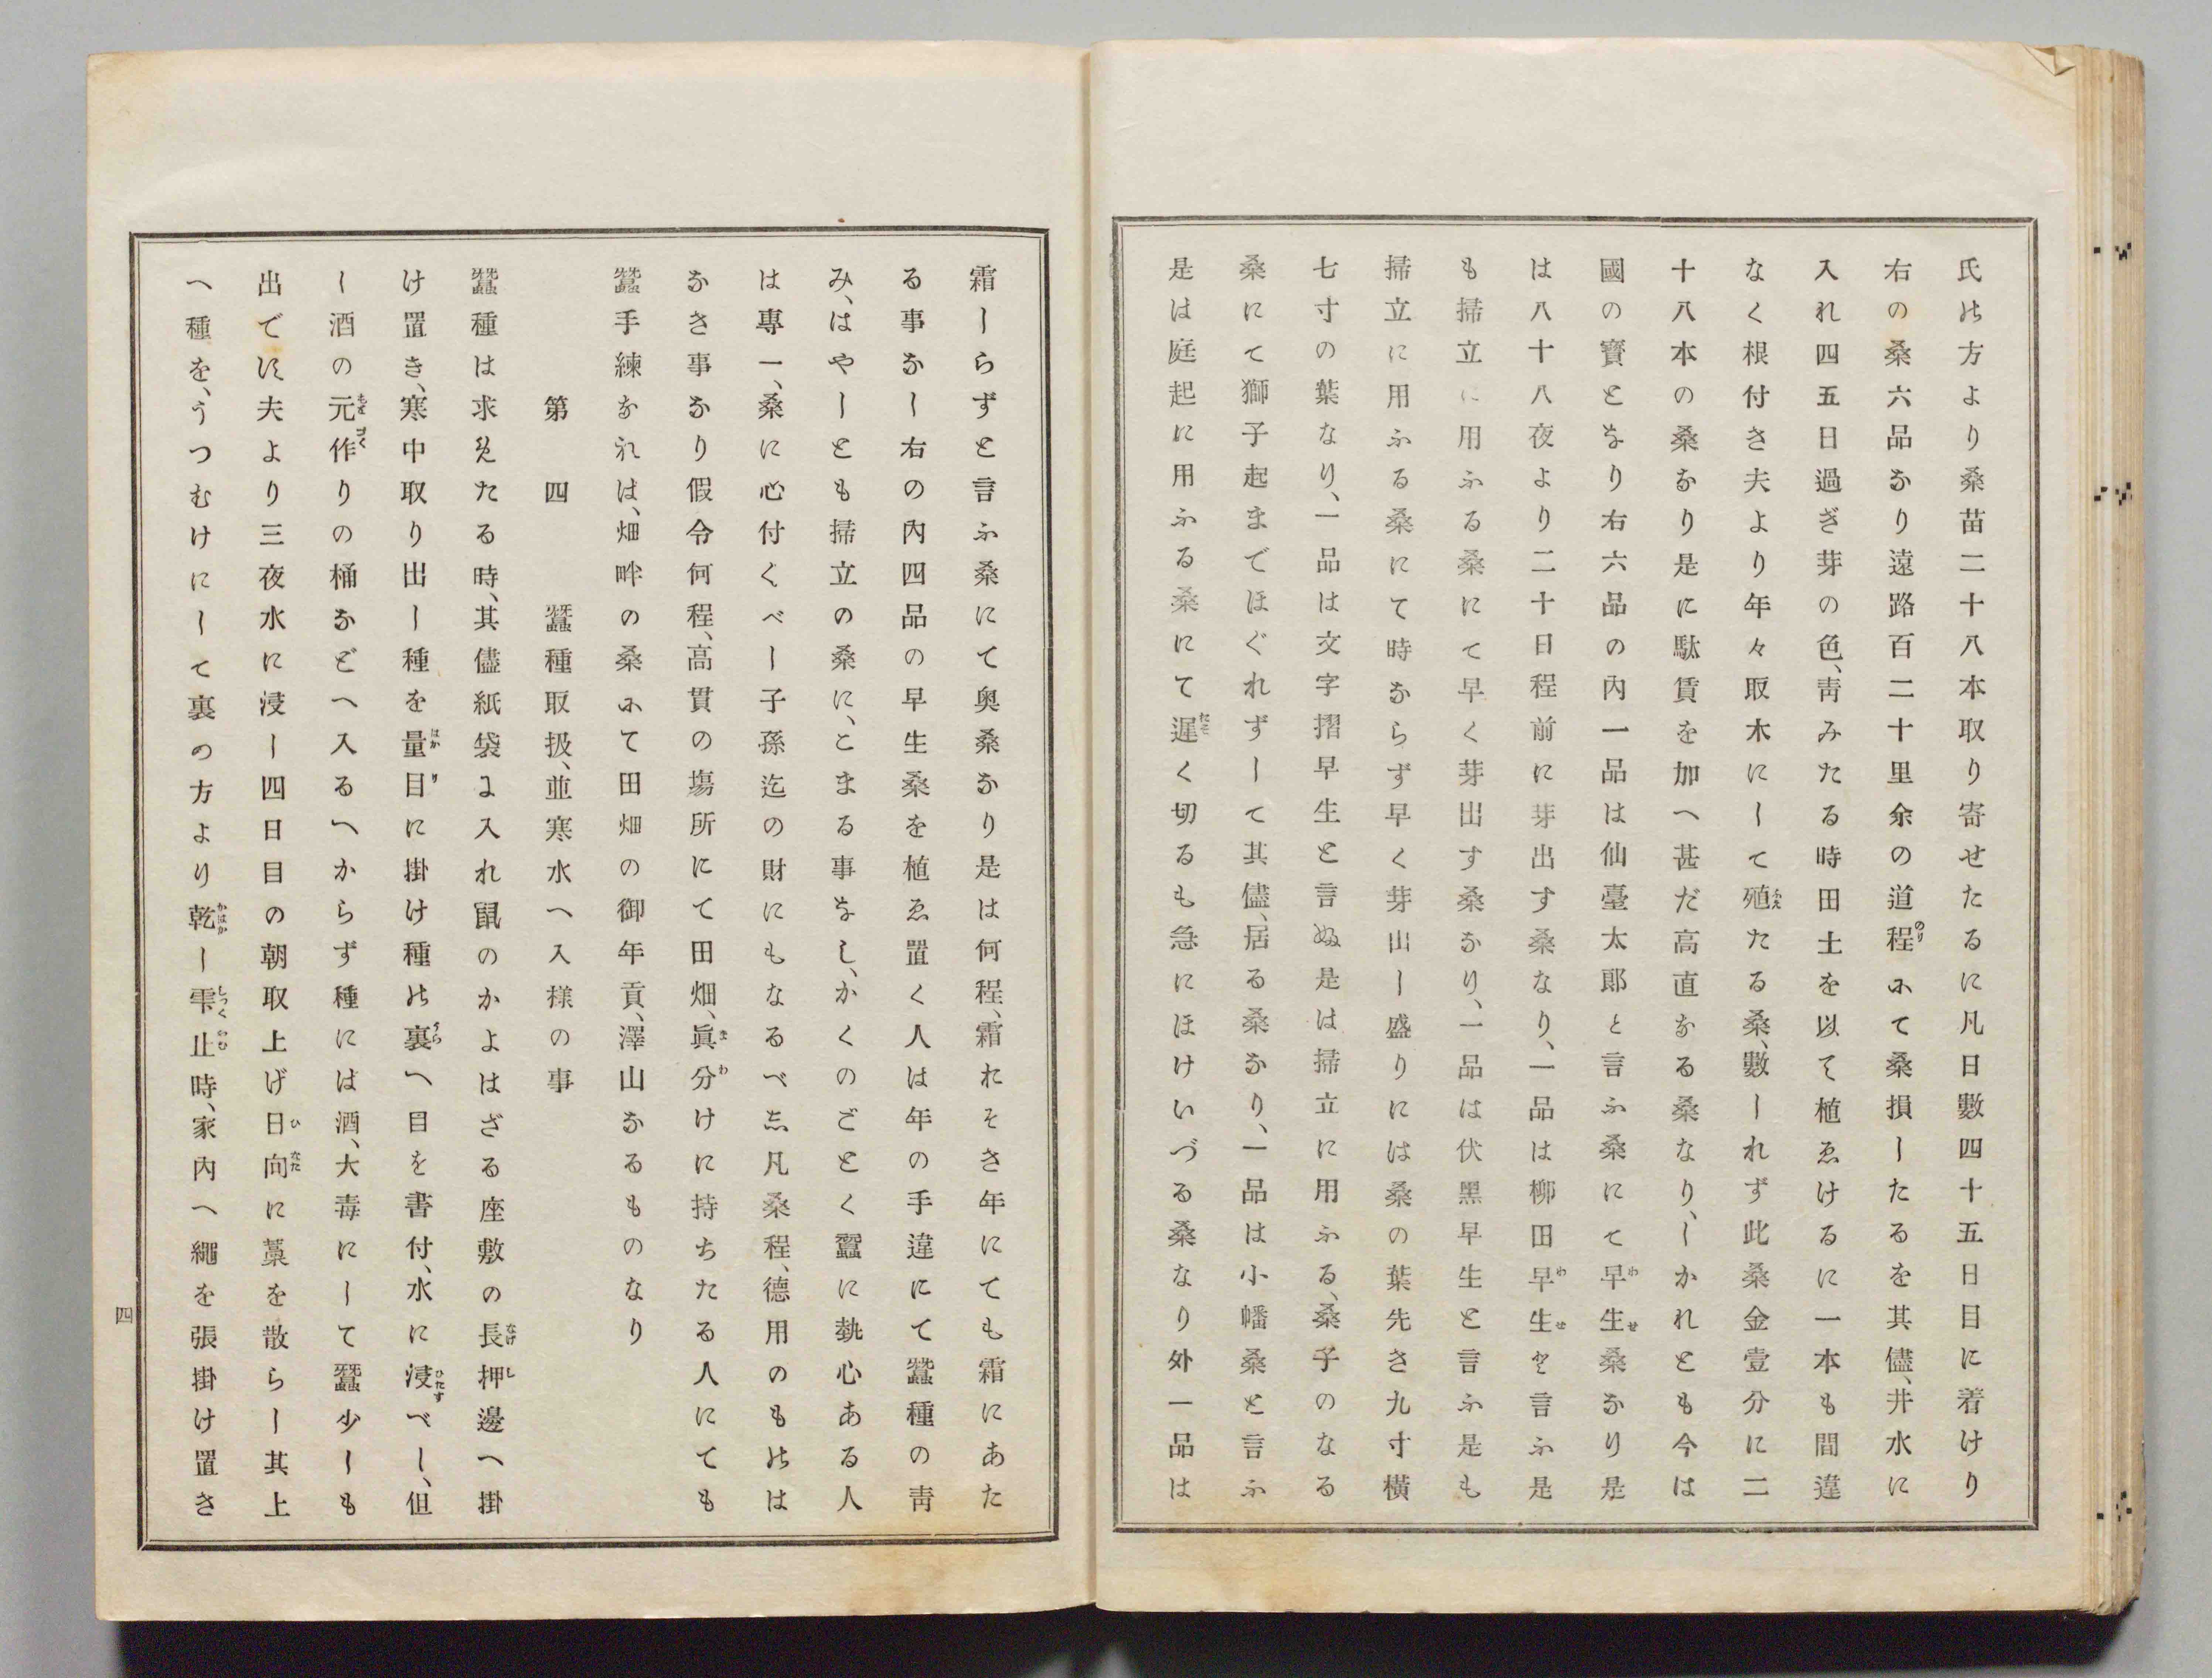 氏の方より桑苗二十八本取り寄せたるに凡日數四十五日目に着けり
右の桑六品なり遠路百二十里余の道程にて桑損したるを其儘、井水に
入れ四五日過ぎ芽の色、靑みたる時田土を以て植ゑけるに一本も間違
なく根付き夫より年々取木にして殖たる桑、數しれず此桑金壹分に二
十八本の桑なり是に駄賃を加へ甚だ高直なる桑なり、しかれとも今は
國の寳となり右六品の內一品は仙臺太郎と言ふ桑にて早生桑なり是
は八十八夜より二十日程前に芽出す桑なり、一品は柳田早生と言ふ是
も掃立に用ふる桑にて早く芽出す桑なり、一品は伏黑早生と言ふ是も
掃立に用ふる桑にて時ならず早く芽出し盛りには桑の葉先き九寸橫
七寸の葉なり、一品は文字摺早生と言ぬ是は掃立に用ふる、桑子のなる
桑にて獅子起までほぐれずして其儘、居る桑なり、一品は小幡桑と言ふ
是は庭起に用ふる桑にて遲く切るも急にほけいづる桑なり外一品は
霜しらずと言ふ桑にて奥桑なり是は何程、霜れそき年にても霜にあた
る事なし右の內四品の早生桑を植ゑ置く人は年の手違にて蠶種の靑
み、はやしとも掃立の桑に、こまる事なし、かくのごとく蠶に執心ある人
は專一、桑に心付くべし子孫迄の財にもなるべし凡桑程、德用のものは
なき事なり假令何程、高貫の塲所にて田畑、眞分けに持ちたる人にても
蠶手練なれは、畑畔の桑にて田畑の御年貢、澤山なるものなり
第四　蠶種取扱、並寒水へ入樣の事
蠶種は求えたる時、其儘紙袋に入れ鼠のかよはざる座敷の長押邊へ掛
け置き、寒中取り出し種を量目に掛け種の裏へ目を書付、水に浸べし、但
し酒の元作りの桶などへ入るへからず種には酒、大毒にして蠶少しも
出でに夫より三夜水に浸し四日目の朝取上げ日向に藁を散らし其上
へ種を、うつむけにして裏の方より乾し雫止時、家內へ繩を張掛け置き
四